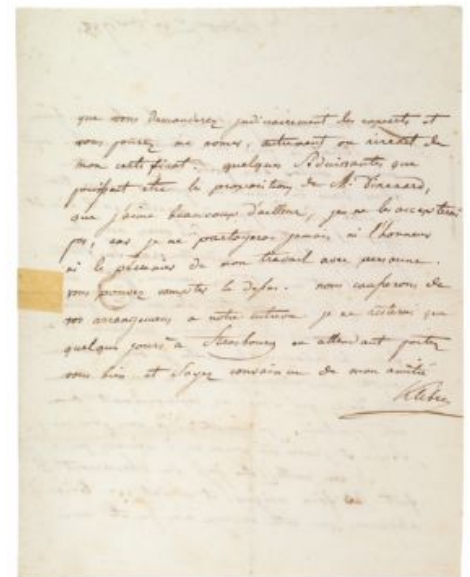 que vous demanderez judiciairement des experts et
vous pourez me nomer, autrement on riroit de
mon certificat. quelques séduisantes que
puissent être les propositions de M.
que j'aime beaucoup d'ailleur, je ne les accepterai
pas, car je ne partagerai jamais ni l'honneur
ni le pécuniér de mon travail avec personne.
vous pouvez compter la desus. nous causerons de
nos arrangemens a notre entrevue je ne resterai que
quelques jours a Strasbourg en attendant portez
vous bien et soyez convaincu de mon amitié
Kleber